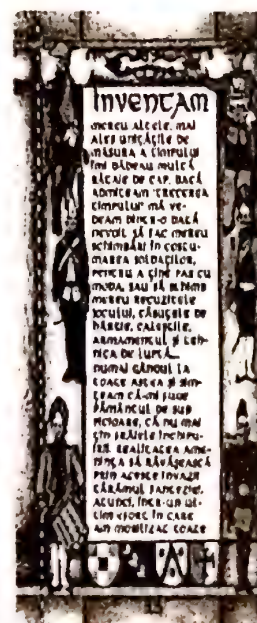 INVENTAM
mereu altele, mai
ales unităţile de
măsură a timpului
îmi dădeau multă
bătaie de cap. Dacă
admiteam "trecerea
timpului" mă ve-
deam dintr-o dată
nevoit să fac mereu
schimbări în costu-
marea soldaţilor,
pentru a ţine pas cu
moda, sau să schimb
mereu recuzitele
jocului, căsuţele de
hârtie, caleştile,
armamentul şi teh-
nica de luptă...
numai gândul la
toate astea şi sim-
ţeam că-mi fuge
pământul de sub
picioare, că nu mai
ţin frâiele închipu-
irii. Realitatea ame-
ninţa să răvăşească
prin aceste invazii
tărâmul fanteziei.
Atunci, într-un ul-
tim efort în care
am mobilizat toate